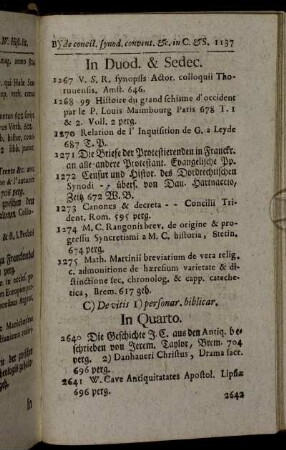 Byde concil. synod. convent. &c. in C. &S. 1137
In Duod. & Sedec.
1267 V. S. R. synopsis Actor. colloquii Tho-
ruuensis, Amst. 646.
1268-99 Histoire du grand schisme d'occident
par le P. Louis Maimbourg Paris 678 T. 1
& 2. Voll. 2 perg.
1270 Relation de l' Inquisition de G. a Leyde
687 T. P.
1271 Die Briefe der Protestierenden in Franckr.
an alle andere Protestant. Evangelische Pp.
1272 Censur und Histor. des Dordrechtischen
Synodi -- übers. von Dan. Hartnaccio,
Zeitz 672 W. B.
1273 Canones & decreta -- Concilii Tri-
dent, Rom. 595 perg.
1274 M. C. Rangonis brev. de origine & pro-
gressu Syncretismi a M. C. historia, Stetin.
674 perg.
1275 Math. Martinii breviarium de vera relig.
c. admonitione de hæresium varietate & di-
stinctione sec. chronolog. & capp. cateche-
tica, Brem. 617 geh.
C) De vitis 1) personar. biblicar.
In Quarto.
2640 Die Geschichte J. C. aus den Antiq. be-
schrieben von Jerem. Taylor, Brem. 704
perg. 2) Danhaueri Christus, Drama sacr.
696 perg.
2641 W. Cave Antiquitatates Apostol. Lipsiæ
696 perg.
2642